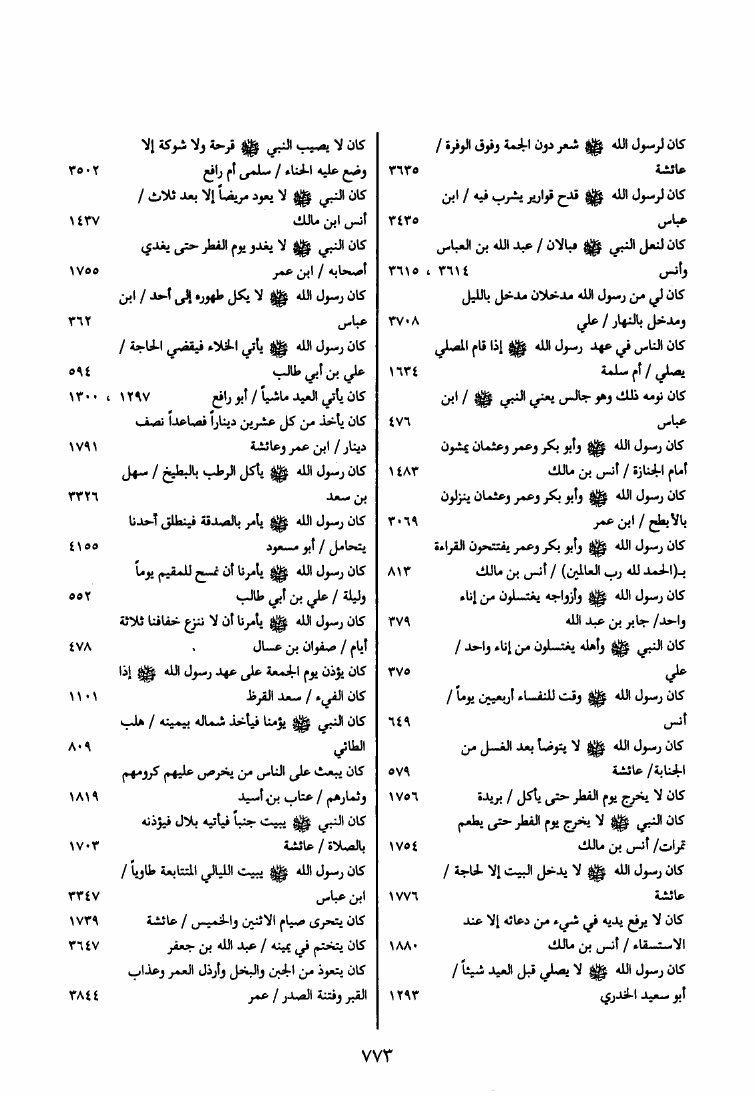 كان لرسول الله ﷺ شعر دون الجمة وفوق الوفرة /
عائشة ٣٦٣٥
كان لرسول الله ﷺ قدح قوارير يشرب فيه / ابن
عباس ٣٤٣٥
كان لنعل النبي ﷺ قبالان / عبد الله بن العباس
وأنس ٣٦١٤ ، ٣٦١٥
كان لي من رسول الله مدخلان مدخل بالليل
ومدخل بالنهار / علي ٣٧٠٨
كان الناس في عهد رسول الله ﷺ إذا قام المصلي
يصلي / أم سلمة ١٦٣٤
كان نومه ذلك وهو جالس يعني النبي ﷺ / ابن
عباس ٤٧٦
كان رسول الله ﷺ وأبو بكر وعمر وعثمان يمشون
أمام الجنازة / أنس بن مالك ١٤٨٣
كان رسول الله ﷺ وأبو بكر وعمر وعثمان ينزلون
بالأبطح / ابن عمر ٣٠٦٩
كان رسول الله ﷺ وأبو بكر وعمر يفتتحون القراءة
بـ(الحمد لله رب العالمين) / أنس بن مالك ٨١٣
كان رسول الله ﷺ وأزواجه يغتسلون من إناء
واحد/ جابر بن عبد الله ٣٧٩
كان النبي ﷺ وأهله يغتسلون من إناء واحد /
علي ٣٧٥
كان رسول الله ﷺ وقت للنفساء أربعين يوماً /
أنس ٦٤٩
كان رسول الله ﷺ لا يتوضأ بعد الغسل من
الجنابة/ عائشة ٥٧٩
كان لا يخرج يوم الفطر حتى يأكل / بريدة ١٧٥٦
كان النبي ﷺ لا يخرج يوم الفطر حتى يطعم
تمرات/ أنس بن مالك ١٧٥٤
كان رسول الله ﷺ لا يدخل البيت إلا لحاجة /
عائشة ١٧٧٦
كان لا يرفع يديه في شيء من دعائه إلا عند
الاستسقاء / أنس بن مالك ١٨٨٠
كان رسول الله ﷺ لا يصلي قبل العيد شيئاً /
أبو سعيد الخدري ١٢٩٣
كان لا يصيب النبي ﷺ قرحة ولا شوكة إلا
وضع عليه الحناء / سلمى أم رافع ٣٥٠٢
كان النبي ﷺ لا يعود مريضاً إلا بعد ثلاث /
أنس ابن مالك ١٤٣٧
كان النبي ﷺ لا يغدو يوم الفطر حتى يغدي
أصحابه / ابن عمر ١٧٥٥
كان رسول الله ﷺ لا يكل طهوره إلى أحد / ابن
عباس ٣٦٢
كان رسول الله ﷺ يأتي الخلاء فيقضي الحاجة /
علي بن أبي طالب ٥٩٤
كان يأتي العيد ماشياً / أبو رافع ١٢٩٧ ، ١٣٠٠
كان يأخذ من كل عشرين ديناراً فصاعداً نصف
دينار / ابن عمر وعائشة ١٧٩١
كان رسول الله ﷺ يأكل الرطب بالبطيخ / سهل
بن سعد ٣٣٢٦
كان رسول الله ﷺ يأمر بالصدقة فينطلق أحدنا
يتحامل / أبو مسعود ٤١٥٥
كان رسول الله ﷺ يأمرنا أن نمسح للمقيم يوماً
وليلة / علي بن أبي طالب ٥٥٢
كان رسول الله ﷺ يأمرنا أن لا ننزع خفافنا ثلاثة
أيام / صفوان بن عسال ٤٧٨
كان يؤذن يوم الجمعة على عهد رسول الله ﷺ إذا
كان الفيء / سعد القرظ ١١٠١
كان النبي ﷺ يؤمنا فيأخذ شماله بيمينه / هلب
الطائي ٨٠٩
كان يبعث على الناس من يخرص عليهم كرومهم
وثمارهم / عتاب بن أسيد ١٨١٩
كان النبي ﷺ يبيت جنباً فيأتيه بلال فيؤذنه
بالصلاة / عائشة ١٧٠٣
كان رسول الله ﷺ يبيت الليالي المتتابعة طاوياً /
ابن عباس ٣٣٤٧
كان يتحرى صيام الاثنين والخميس / عائشة ١٧٣٩
كان يتختم في يمينه / عبد الله بن جعفر ٣٦٤٧
كان يتعوذ من الجبن والبخل وأرذل العمر وعذاب
القبر وفتنة الصدر / عمر ٣٨٤٤
٧٧٣